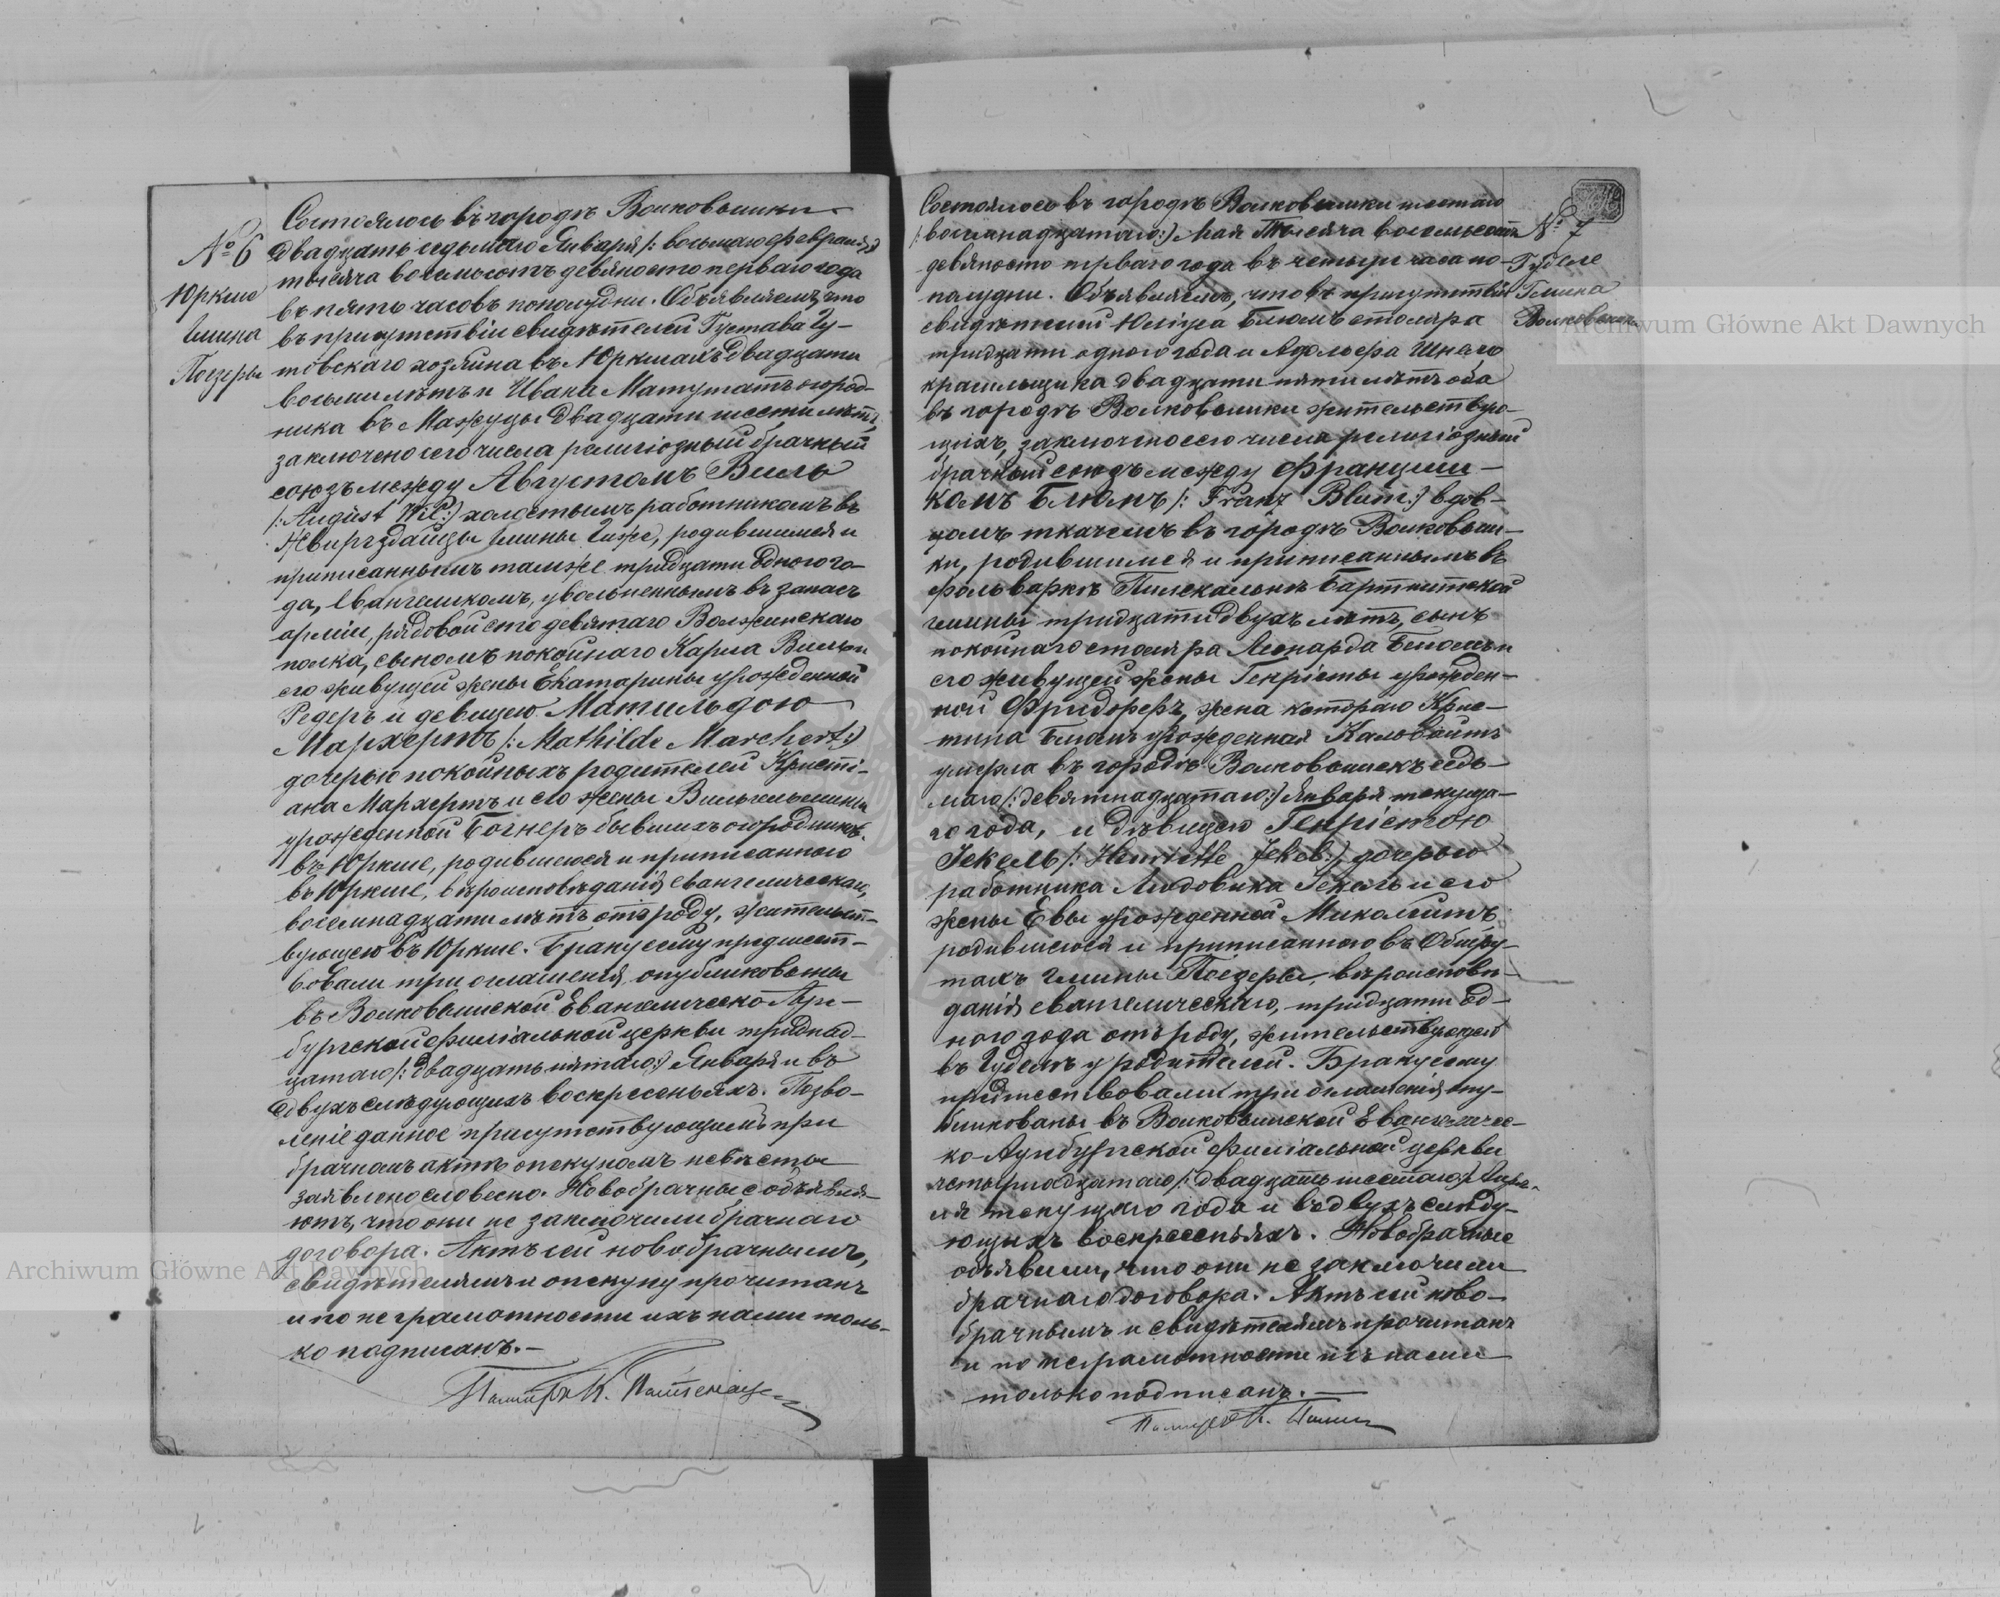 № 6
Юркше
гмина
Поезеры
Состоялось въ городѣ Волковышки
двадцать седьмаго Января /: восьмаго февраля:/
тысяча восемьсотъ девяносто перваго года
въ пять часовъ пополудни. Объявляемъ, что
въ присутствіи свидѣтелей Густава Гу-
товскаго хозяина въ Юркшахъ двадцати
восьми лѣтъ и Ивана Матутатъ огород-
ника въ Мажуцы двадцати шести лѣтъ,
заключено сего числа религіозный брачный
союзъ между Августомъ Виль
/: August Wil:/ холостымъ работникомъ въ
гмины родившимся и
приписаннымъ тамже тридцати одного го-
да, Евангеликомъ, увольненнымъ въ запасъ
арміи, рядовой сто девятаго Волжскаго
полка, сыномъ покойнаго Карла Виль и
его живущей жены Екатарины урожденной
Редеръ и девицею Матильдою
Мархертъ /: Mathilde Marchert:/
дочерью покойныхъ родителей Кристі-
ана Мархертъ и его жены Вильгельмины
урожденной Богнеръ бывшихъ огородниковъ
въ Юркше, родившеюся и приписанною
въ Юркше, вѣроисповѣданія евангелическаго,
восемнадцати лѣтъ отъ роду, жительст-
вующею въ Юркше. Браку сему предшест-
вовали три оглашенія, опубликованы
въ Волковышской Евангелическо Аугс-
бургской филіальной церкви тринад-
цатаго /: двадцать пятаго:/ Января и въ
двухъ слѣдующихъ воскресеньяхъ. Позво-
леніе данное присутствующимъ при
брачномъ актѣ опекуномъ невѣсты
заявлено словесно. Новобрачные объявля-
ютъ, что они не заключили брачнаго
договора. Актъ сей новобрачнымъ,
свидѣтелямъ и опекуну прочитанъ
и по неграмотности ихъ нами толь-
ко подписанъ.—
Состоялось въ городѣ Волковышки шестаго
/: восемнадцатаго:/ Мая Тысяча восемьсотъ
девяносто перваго года въ четыре часа по-
полудни. Объявляемъ, что въ присутствіи
свидѣтелей Юліуса Блюмъ столяра
тридцати одного года и Адольфа
красильщика двадцати пяти лѣтъ оба
въ городѣ Волковышки жительствую-
щихъ, заключено сего числа религіозный
брачный союзъ между Францишкомъ-
комъ Блюмъ /: Franz Blum:/ вдов-
цомъ ткачемъ въ городѣ Волковыш-
ки, родившимся и приписаннымъ въ
фольваркѣ Бартнитской
гмины тридцати двухъ лѣтъ, сынъ
покойнаго столяра Леонарда Блюмъ и
его живущей жены Генріеты урожден-
ной жена котораго Крис-
тина Блюмъ урожденная
умерла въ городѣ Волковышкъ седь-
маго /: девятнадцатаго:/ Января текуща-
го года, и дѣвицею Генріетою
Іекель /: Henriette Jekel:/ дочерью
работника Людовика Іекель и его
жены Евы урожденной Миколейтъ
родившеюся и приписанною въ
тахъ гмины Поезеры, вѣроисповѣ-
данія евангелическаго, тридцати од-
ного года отъ роду, жительствующей
въ Гудель у родителей. Браку сему
предшествовали три оглашенія опу-
бликованы въ Волковышской Евангеличес-
ко-Аугсбургской филіальной церкви
четырнадцатаго /: двадцать шестаго:/ Апрѣ-
ля текущаго года и въ двухъ слѣду-
ющихъ воскресеньяхъ. Новобрачные
объявили, что они не заключили
брачнаго договора. Актъ сей ново-
брачнымъ и свидѣтелямъ прочитанъ
и по неграмотности ихъ нами
только подписанъ.—
№ 7
Гуделе
Гмина
Archiwum Główne Akt Dawnych
Archiwum Główne Akt Dawnych